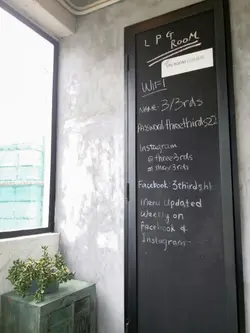 LPG
ROOM
WIFI
NAME: 3/3rds
Password: threethirds22
Instagram
@three3rds
#three3rds
Facebook: 3thirds.hk
Menu Updated
Weekly on
Facebook &
Instagram